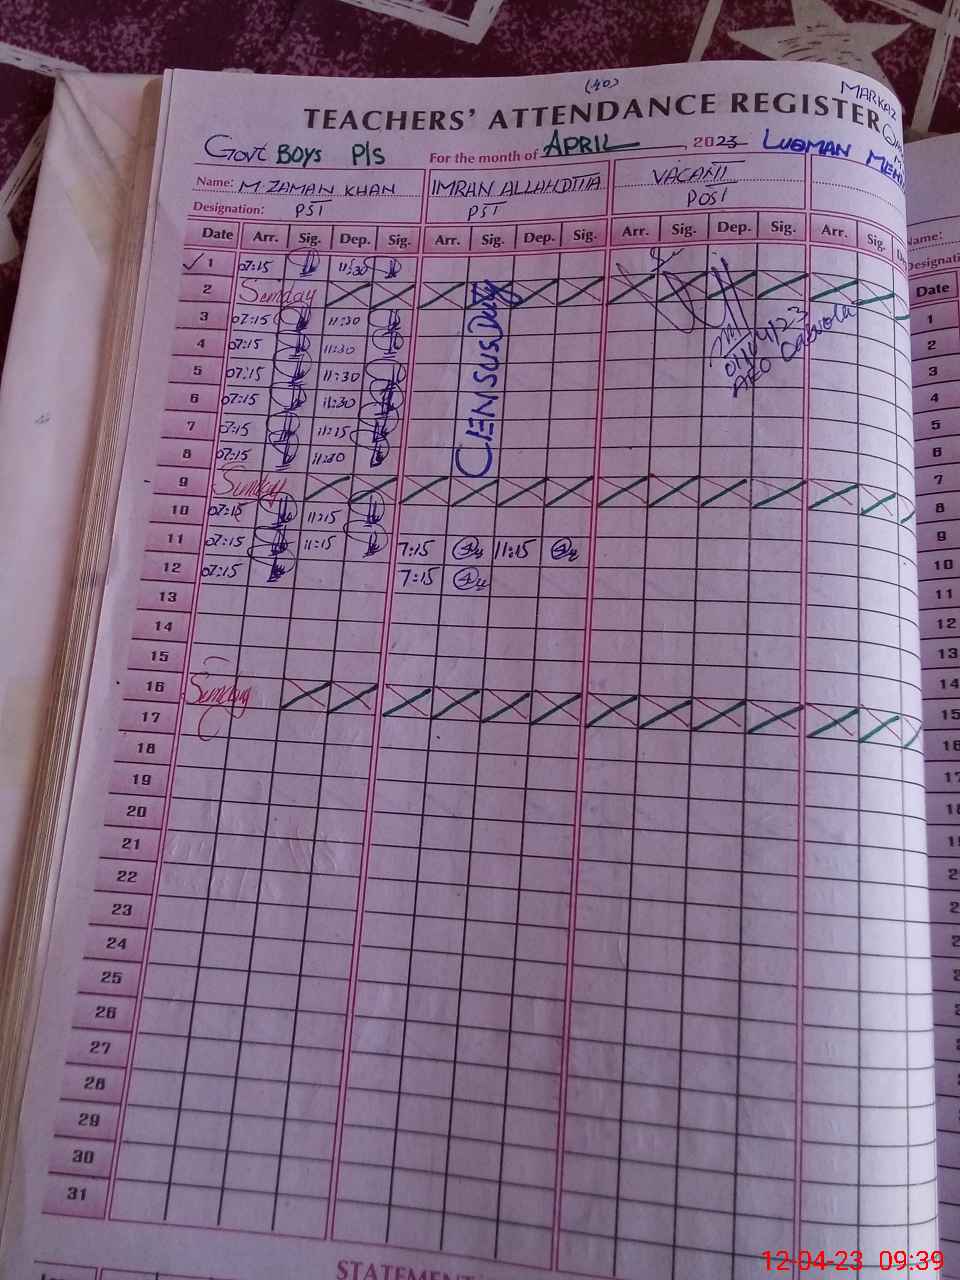 (40)
MARKAZ
TEACHERS' ATTENDANCE REGISTER
Govt BOYS P/S For the month of APRIL, 2023 LUQMAN
Name: M ZAMAN KHAN IMRAN ALLAHDITTA VACANT
Designation: PST PST POST
Date Arr. Sig. Dep. Sig. Arr. Sig. Dep. Sig. Arr. Sig. Dep. Sig. Arr. Sig.
1 07:15 11:30
2 Sunday
CENSUS Duty
3 07:15 11:30
4 07:15 11:30
5 07:15 11:30
6 07:15 11:30
7 07:15 11:15
8 07:15 11:30
9 Sunday
10 07:15 11:15
11 07:15 11:15 7:15 11:15
12 07:15 7:15
13
14
15
16 Sunday
17
18
19
20
21
22
23
24
25
26
27
28
29
30
31
STATEMENT
Name:
Date
1
2
3
4
5
6
7
8
9
10
11
12
13
14
15
16
12-04-23 09:39